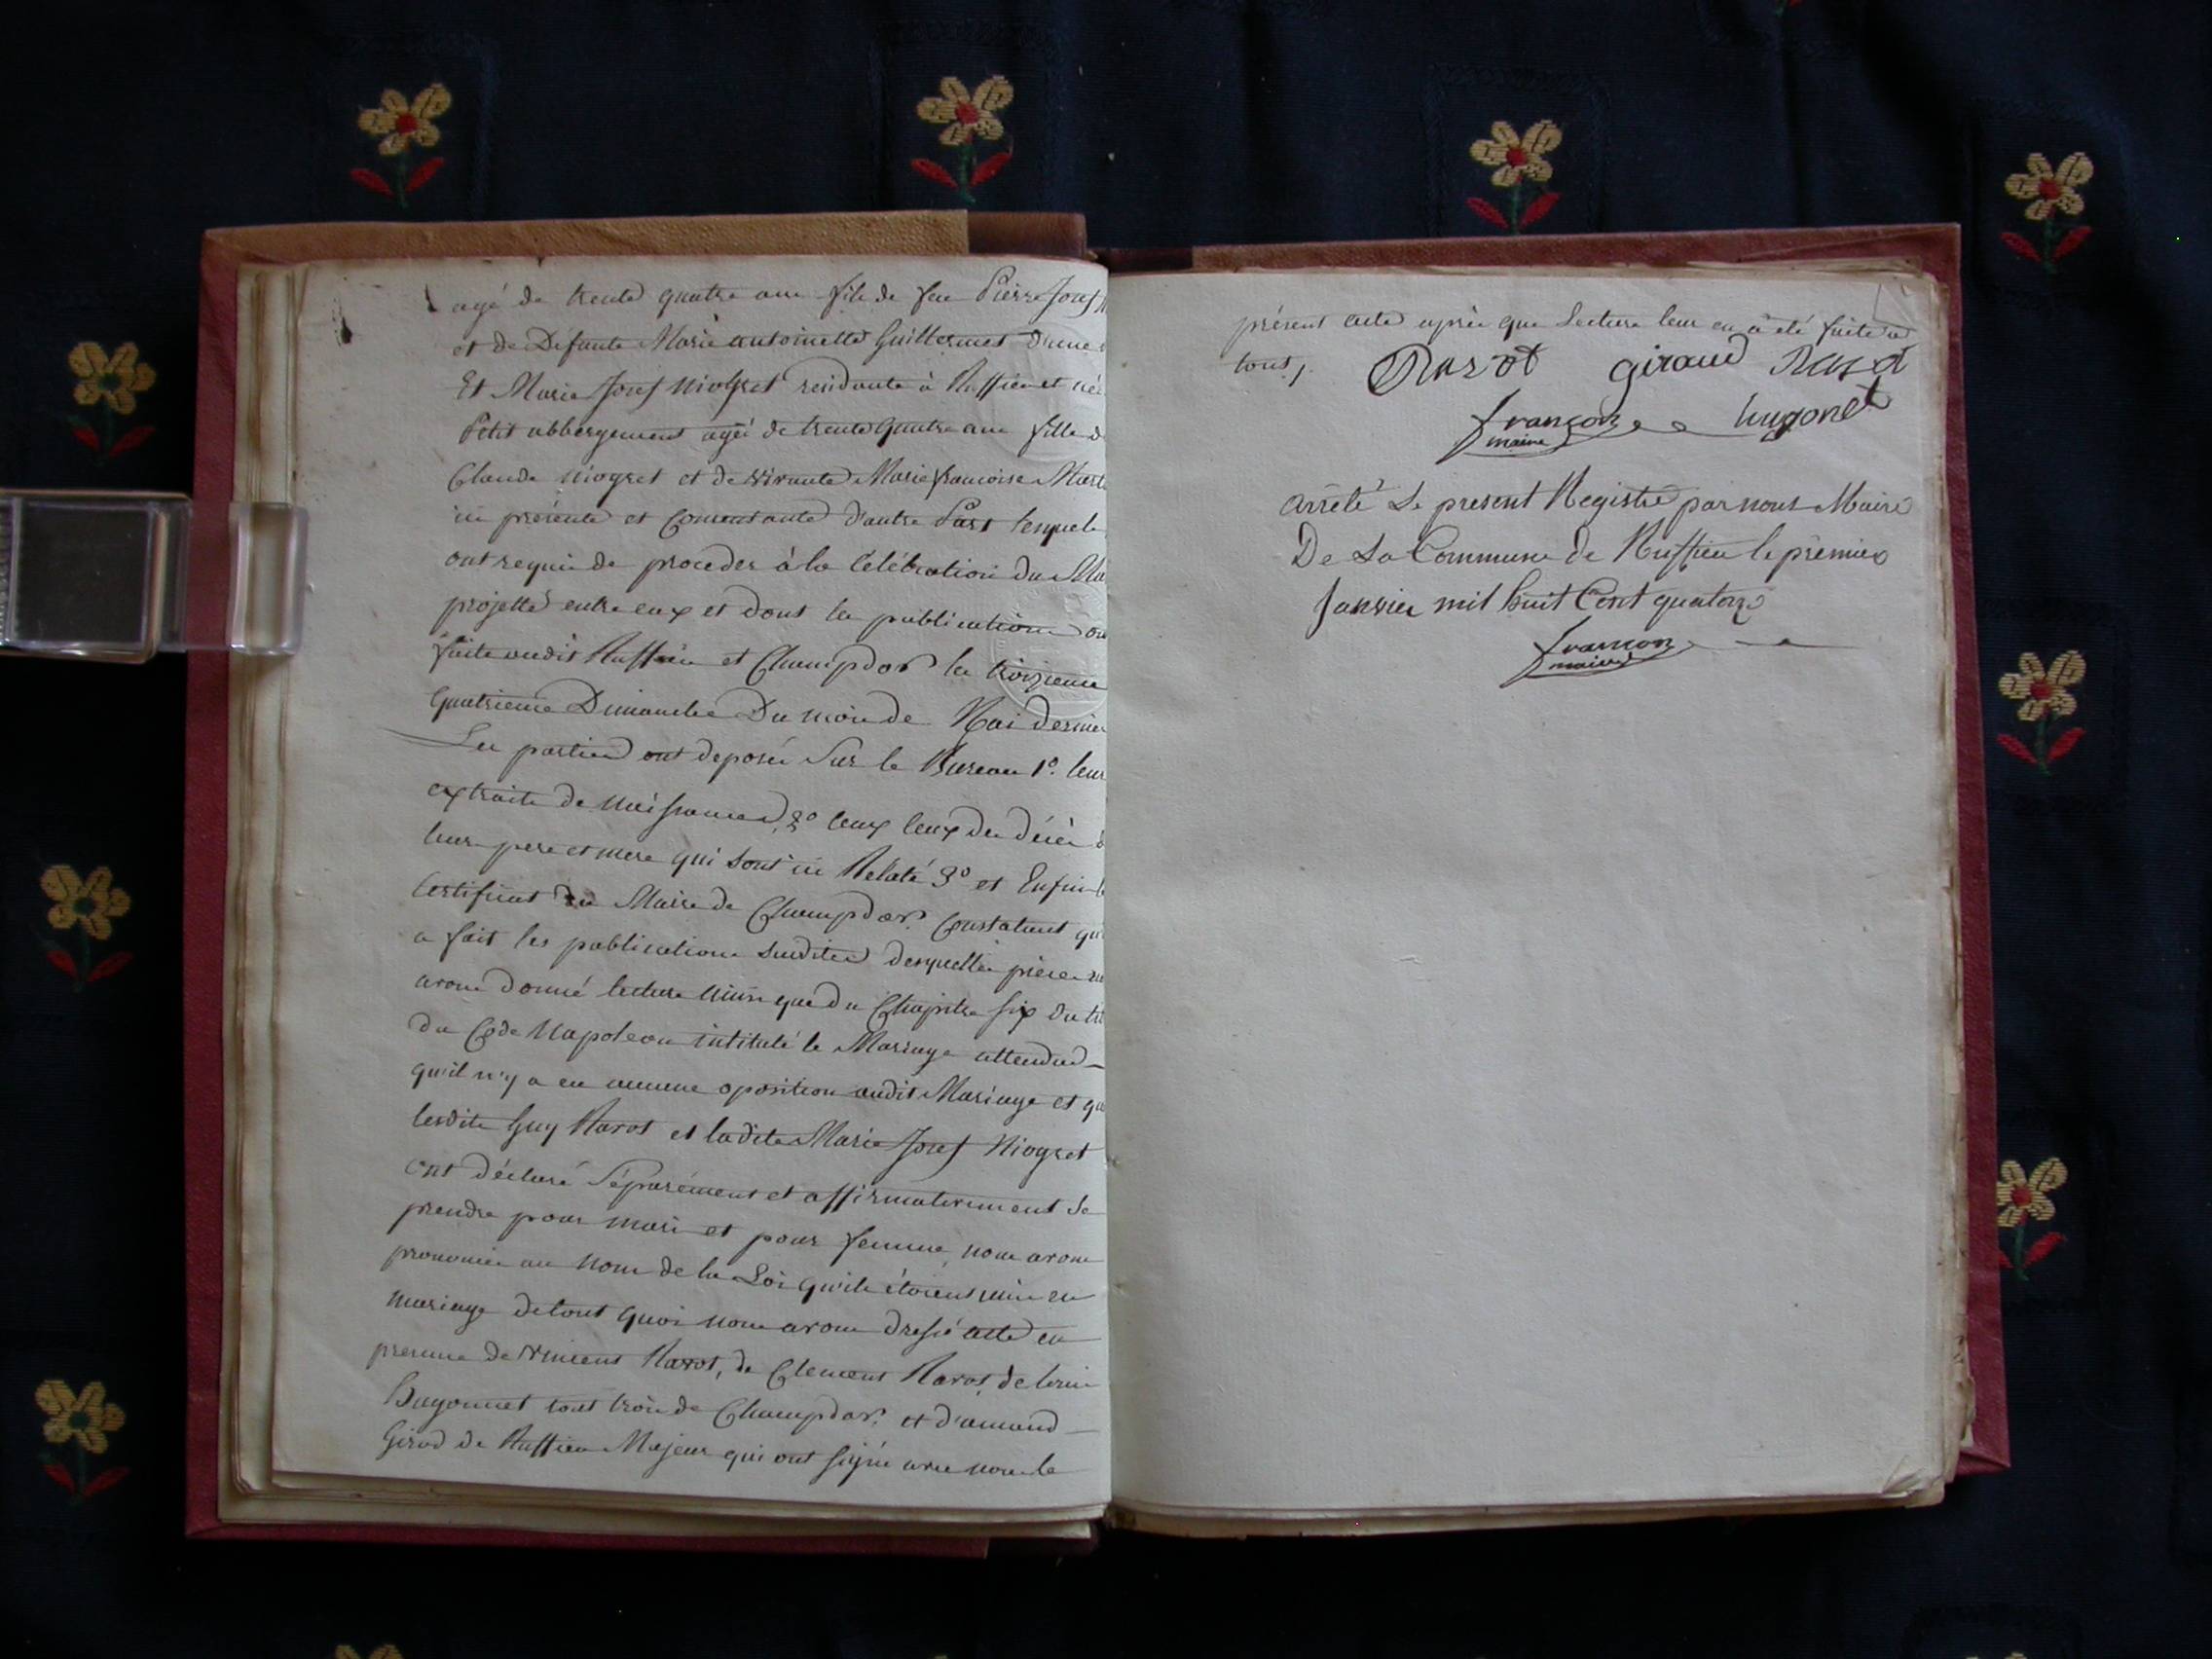 agé de trente quatre ans fils de feu Pierre Josef
et de Défunte Marie antoinette Guillermet d'une
Et Marie Josef Niogret residante à Ruffieu et née
Petit abbergement agée de trente quatre ans fille d
Claude Niogret et de vivante Marie francoise Mart
ici présente et consentante d'autre Part lesquels
ont requis de proceder à la Célébration du Ma
projetté entre eux et dont les publications on
faite audit Ruffieu et Champdor les troizieme
quatrieme Dimanche Du mois de Mai dernier
Les parties ont deposés sur le Bureau 1º. leur
extraits de Naissances, 2º ceux des décès d
leurs pere et mere qui sont ici Relaté 3º et Enfin le
Certificat du Maire de Champdor. Constatant qu
a fait les publications susdites desquelles pièces nous
avons donné lecture ainsi que du Chapitre six du tit
du Code Napoleon intitulé le Mariage attendu
qu'il n'y a eu aucune oposition audit Mariage et que
lesdits Guy Ravot et ladite Marie Josef Niogret
ont déclaré Séparément et affirmativement se
prendre pour mari et pour femme, nous avons
prononcé au Nom de la Loi qu'ils étoient unis en
mariage de tout quoi nous avons dressé acte en
presence de Vincent Ravot, de Clement Ravot, de louis
Hugonnet tous trois de Champdor. et d'amand
Girod de Ruffieu Majeurs qui ont signés avec nous le
présent acte après que Lecture leur en a été faite à
tous.
Ravot giraud Ravot
françon hugonet
maire
arrêté Le present Registre par nous Maire
De La Commune de Ruffieu le premier
Janvier mil huit Cent quatorze
françon
maire